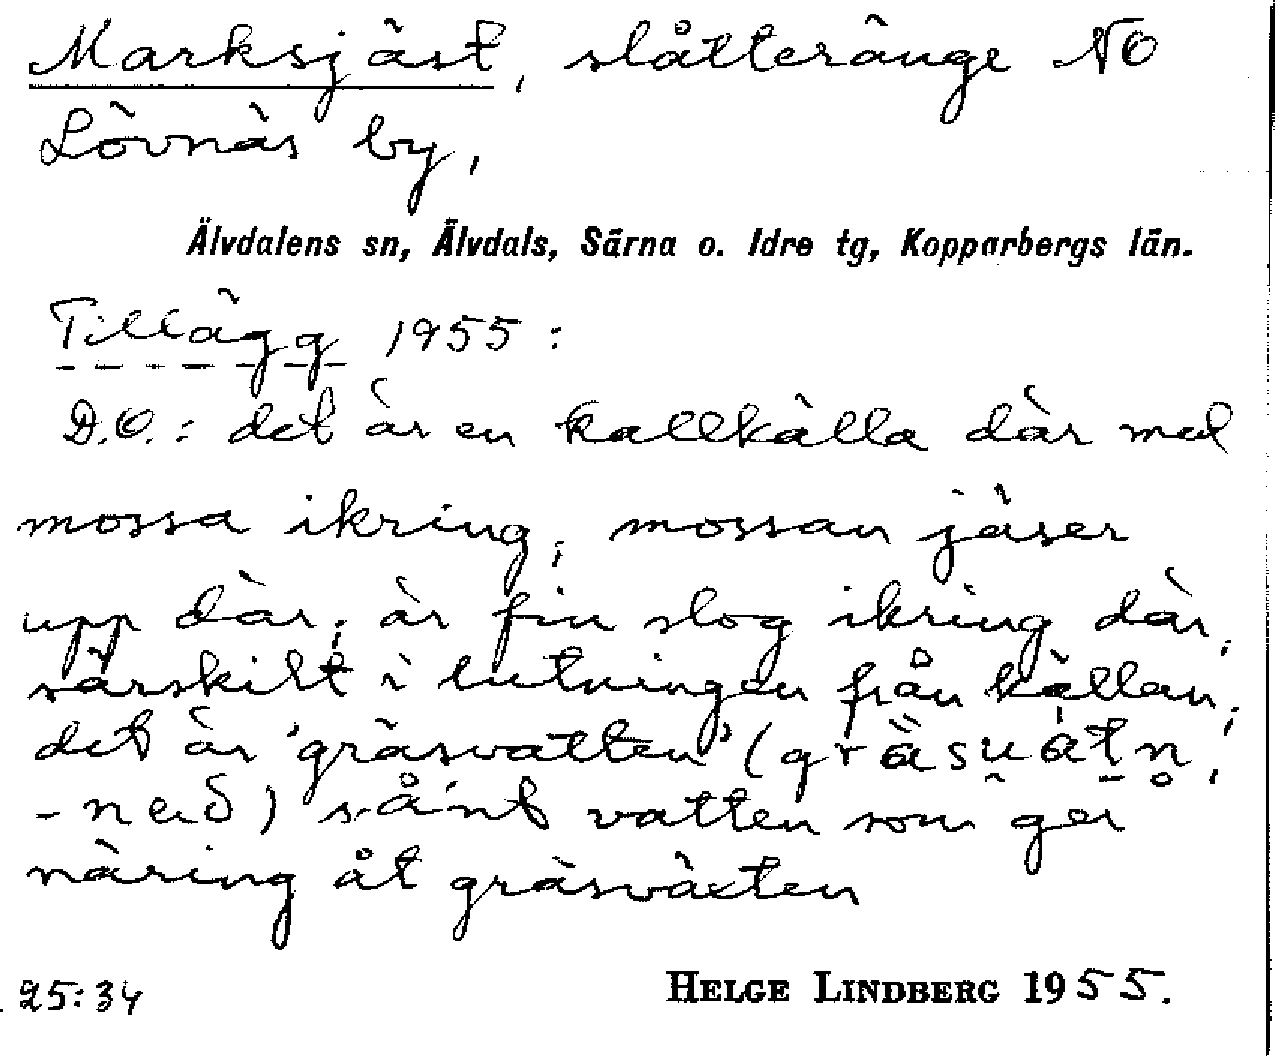 Marksjäst, slåtteränge NO
Lövnäs by,
Älvdalens sn, Älvdals, Särna o. Idre tg, Kopparbergs län.
Tillägg 1955:
D.O.: det är en kallkälla där med
mossa ikring; mossan jäser
upp där; är fin slog ikring där,
särskilt i lutningen från källan;
det är 'gräsvatten' (gräsu̯átn̥,
-neð) sånt vatten som ger
näring åt gräsväxten
25:34
HELGE LINDBERG 1955.